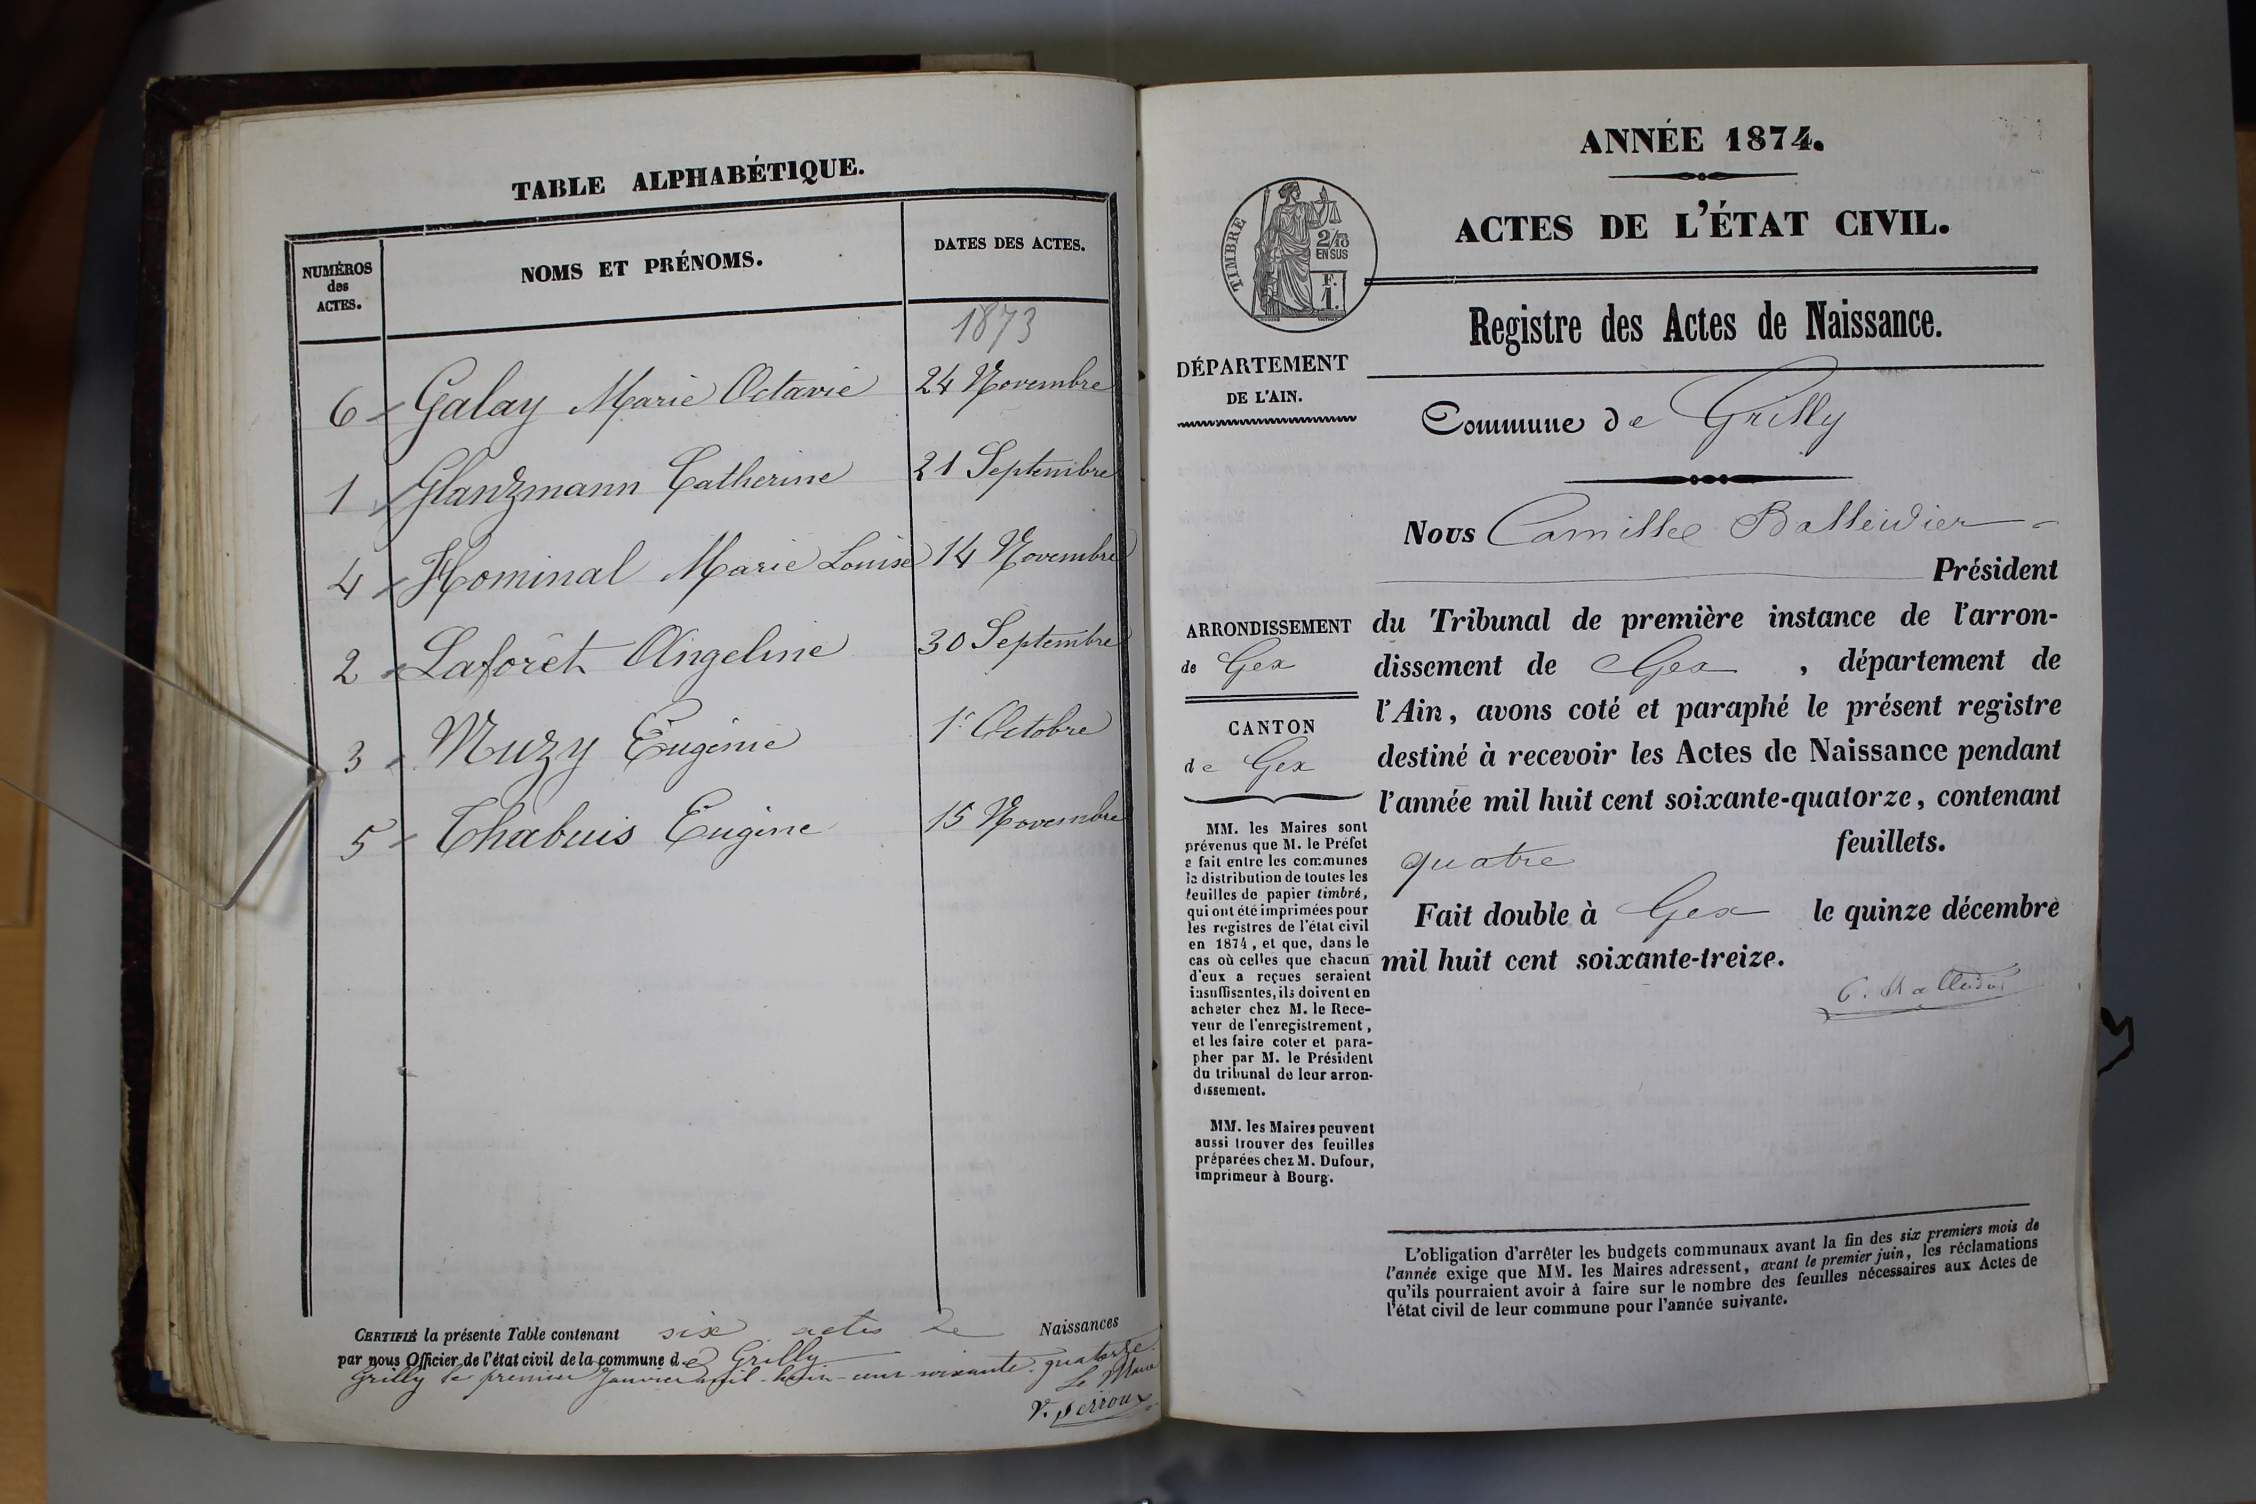 TABLE ALPHABÉTIQUE.
NUMÉROS
des
ACTES.
NOMS ET PRÉNOMS.
DATES DES ACTES.
1873
6 Galay Marie Octavie 24 Novembre
1 Glanzmann Catherine 21 Septembre
4 Hominal Marie Louise 14 Novembre
2 Laforêt Angeline 30 Septembre
3 Muzy Eugénie 1er Octobre
5 Chabuis Eugène 15 Novembre
CERTIFIÉ la présente Table contenant six actes de Naissances
par nous Officier de l'état civil de la commune de Grilly
Grilly le premier Janvier mil-huit-cent-soixante-quatorze.
Le Maire
ANNÉE 1874.
ACTES DE L'ÉTAT CIVIL.
TIMBRE
2/10
EN SUS
F.
1.
Registre des Actes de Naissance.
DÉPARTEMENT
DE L'AIN.
Commune de Grilly
Nous Camille Balleidier
Président
du Tribunal de première instance de l'arron-
dissement de Gex , département de
l'Ain, avons coté et paraphé le présent registre
destiné à recevoir les Actes de Naissance pendant
l'année mil huit cent soixante-quatorze, contenant
quatre feuillets.
Fait double à Gex le quinze décembre
mil huit cent soixante-treize.
C. Balleidier
ARRONDISSEMENT
de Gex
CANTON
de Gex
MM. les Maires sont
prévenus que M. le Préfet
a fait entre les communes
la distribution de toutes les
feuilles de papier timbré,
qui ont été imprimées pour
les registres de l'état civil
en 1874, et que, dans le
cas où celles que chacun
d'eux a reçues seraient
insuffisantes, ils doivent en
acheter chez M. le Rece-
veur de l'enregistrement,
et les faire coter et para-
pher par M. le Président
du tribunal de leur arron-
dissement.
MM. les Maires peuvent
aussi trouver des feuilles
préparées chez M. Dufour,
imprimeur à Bourg.
L'obligation d'arrêter les budgets communaux avant la fin des six premiers mois de
l'année exige que MM. les Maires adressent, avant le premier juin, les réclamations
qu'ils pourraient avoir à faire sur le nombre des feuilles nécessaires aux Actes de
l'état civil de leur commune pour l'année suivante.